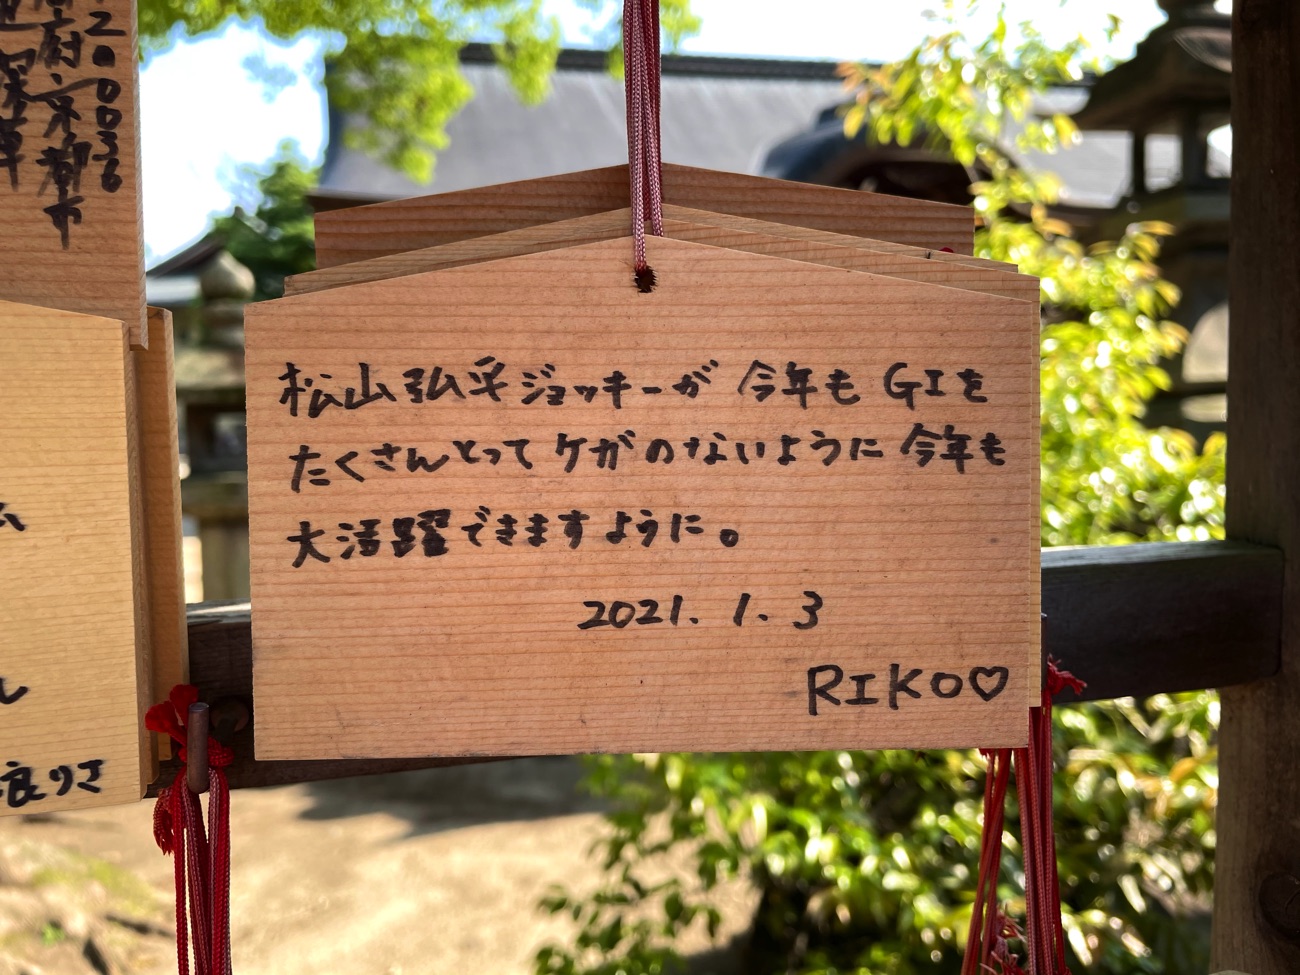 松山弘平ジョッキーが 今年も GIを
たくさんとって ケガのないように 今年も
大活躍できますように。
2021. 1. 3
RIKO♡
府京都市
良りさ